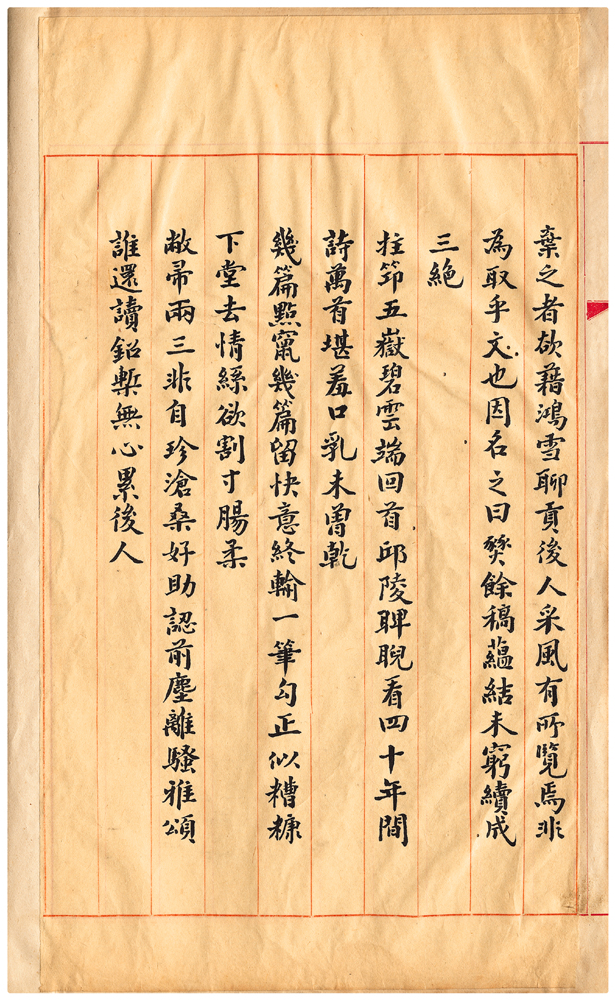 棄之者欲藉鴻雪聊貢後人采風有所覽焉非
為取乎文也因名之曰焚餘稿蘊結未窮續成
三絕
拄笻五嶽碧雲端回首邱陵睥睨看四十年間
詩萬首堪羞口乳未曾乾
幾篇點竄幾篇留快意終輸一筆勾正似糟糠
下堂去情絲欲割寸腸柔
敝帚兩三非自珍滄桑好助認前塵離騷雅頌
誰還讀鉛槧無心累後人